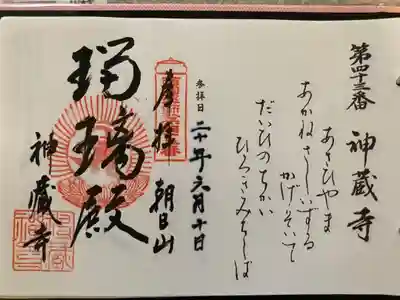 第四十三番 神蔵寺
あさひやま
あかねさしいずる
かげそいて
だいひのちかい
参拝日 二十年六月十日
奉拝 朝日山
瑠璃殿
神蔵寺